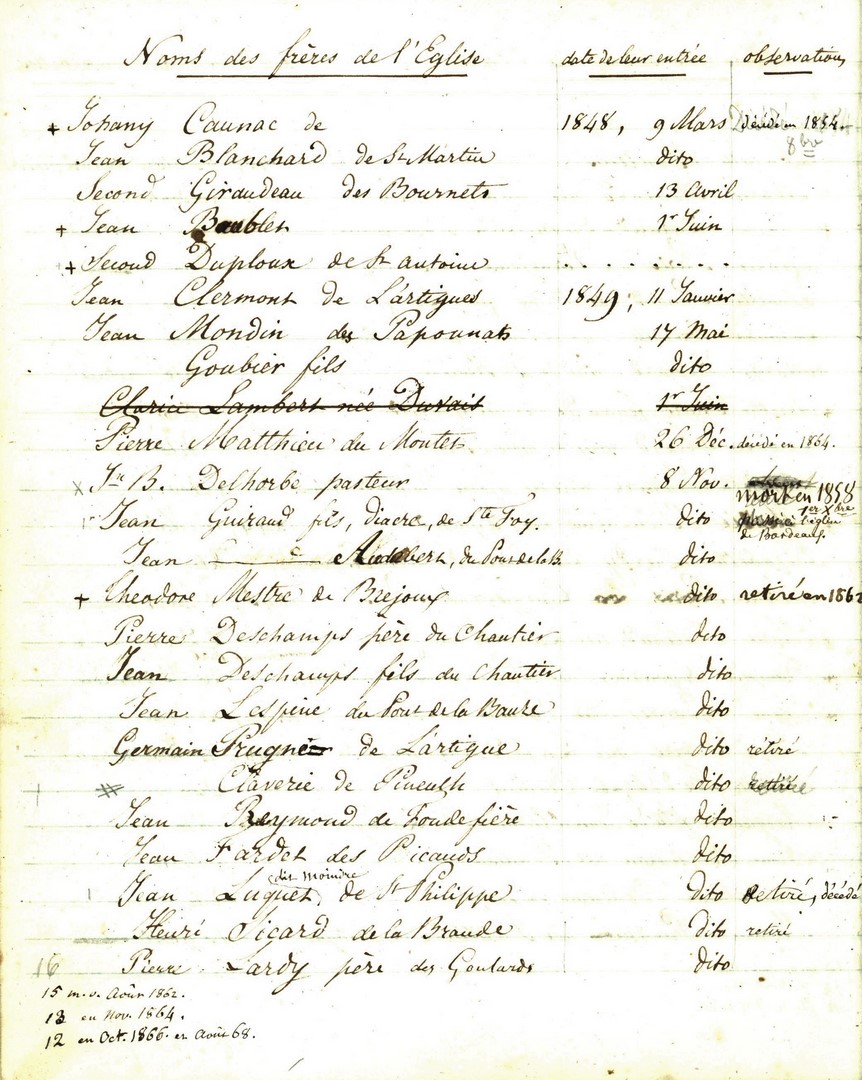 Noms des frères de l'Eglise date de leur entrée observations
+ Johany Caunac de 1848, 9 Mars décédé en 1854.
8bre
Jean Blanchard de St Martin dito
Second Giraudeau des Bournets 13 Avril
+ Jean Baubler 1r Juin
+ Second Duploux de St antoine . . . . . . . .
Jean Clermont de Lartigues 1849, 11 Janvier
Jean Mondin des Papounats 17 Mai
Goubier fils dito
Clarice Lambert née Duvait 1r Juin
Pierre Matthieu du Montet 26 Déc. décédé en 1864.
x Jn B. Delhorbe pasteur 8 Nov. mort en 1858
1er Xbre
Jean Guiraud fils, Diacre, de Ste Foy. dito l'église
de Bordeaux.
Jean Audebert, du Pont de la B. dito
+ Théodore Mestre de Brejoux dito retiré en 1862
Pierre Deschamps père du Chantier dito
Jean Deschamps fils du Chantier dito
Jean Lespine du Pont de la Bauze dito
Germain Prugnè de Lartigue dito rétiré
# Claverie de Pineuilh dito retiré
Jean Reymond de Fondefière dito
Jean Fardet des Picauds dito
dit moindre
Jean Luquet, de St Philippe Dito Retiré, décédé
Henri Sicard de la Brande dito retiré
16 Pierre Lardy père des Goulards dito
15 m.v. Août 1862.
13 en Nov. 1864.
12 en Oct. 1866. en Août 68.